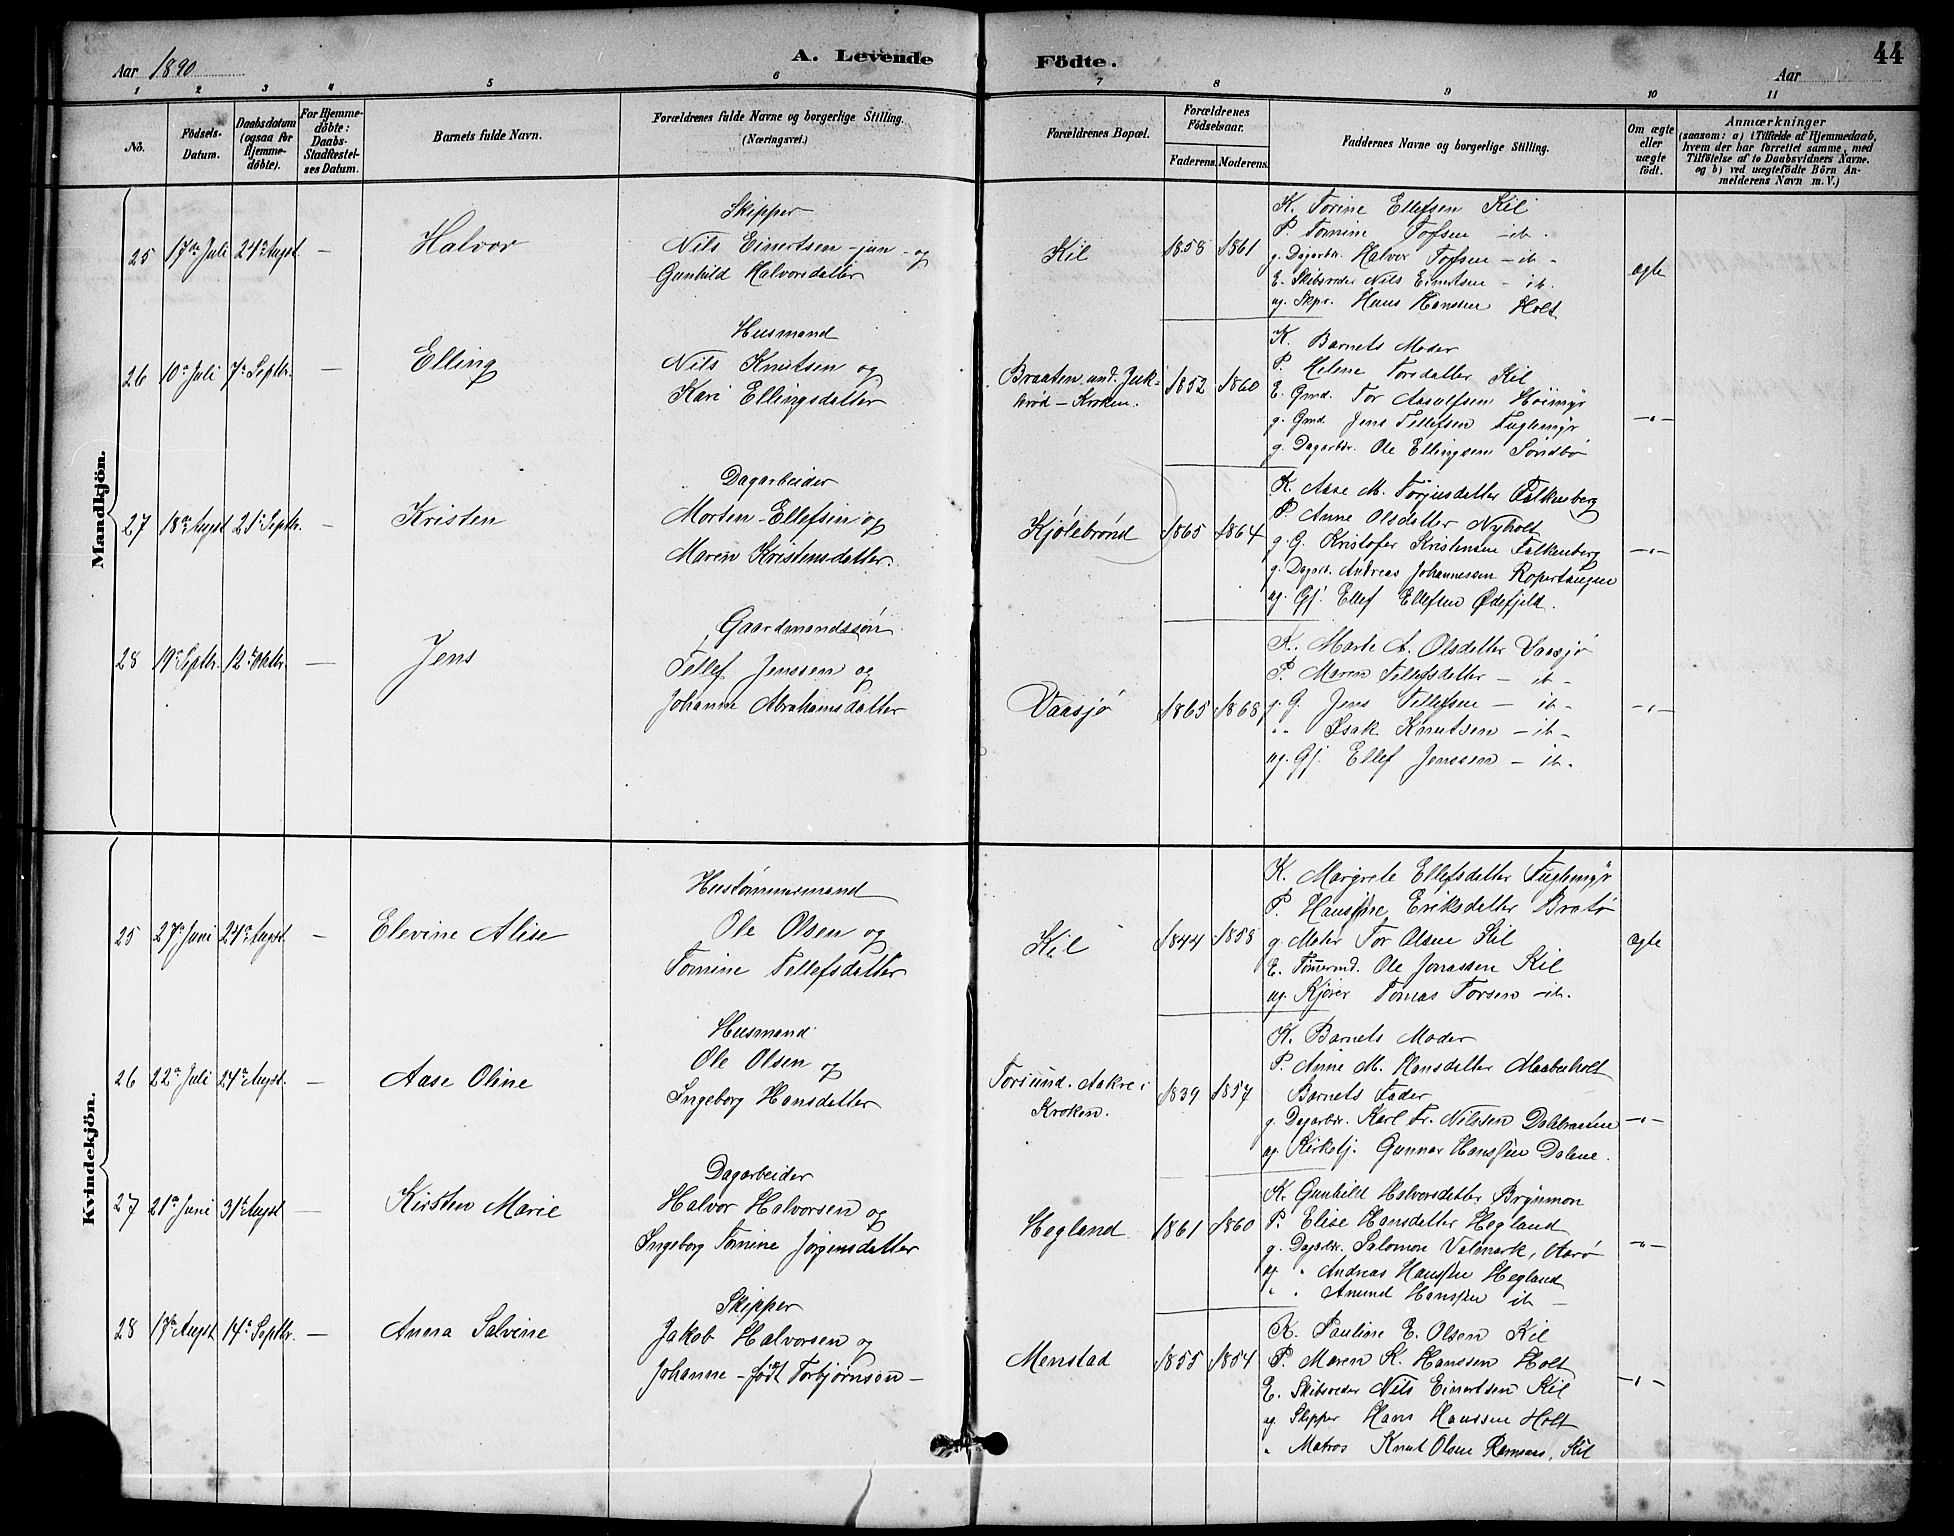 Aar 1890
A. Levende Födte.
Aar
44
1 2 3 4 5 6 7 8 9 10 11
No.
Födsels-Datum.
Daabsdatum (ogsaa for Hjemme-döbte).
For Hjemme-döbte: Daabs-Stadfæstel-ses Datum.
Barnets fulde Navn.
Forældrenes fulde Navne og borgerlige Stilling. (Næringsvei.)
Forældrenes Bopæl.
Forældrenes Födselsaar.
Faderens. Moderens.
Faddernes Navne og borgerlige Stilling.
Om ægte eller uægte födt.
Anmærkninger
(saasom: a) i Tilfælde af Hjemmedaab, hvem der har forrettet samme, med Tilföielse af to Daabsvidners Navne. og b) ved uægtefödte Börn An-melderens Navn m. V.)
Mandkjön.
25 17de Juli 24de Augst — Halvor
Skipper
Nils Einertsen jun. og
Gunhild Halvorsdatter
Kil 1858 1861
K. Torine Ellefsen Kil
P. Tomine Tofsen — it.
g. Dagarbr. Halvor Tofsen — it.
E. Skibsreder Nils Einertsen — it.
og Skpr. Hans Hanssen Holt
ægte
26 10de Juli 7de Septbr. — Elling
Husmand
Nils Knutsen og
Kari Ellingsdatter
Braaten und. Juk-
brød — Kroken. 1852 1860
K. Barnets Moder
P. Helene Torsdatter Kil
E. Gmd. Tor Aasulfsen Höimyr
g. Gmd. Jens Tellefsen Fuglemyr
g. Dagarbr. Ole Ellingsen Söndbö
—"—
27 18de Augst 21de Septbr. — Kristen
Dagarbeider
Morten Ellefsen og
Maren Kristensdatter
Kjølebrønd 1865 1864
K. Aase M. Torjusdatter Falkenberg
P. Anne Olsdatter Nyholt
g. G. Kristofer Kristensen Falkenberg
g. Dagarb. Andreas Johannessen Ropertangen
og Gj. Ellef Ellefsen Ødefjeld.
—"—
28 19de Septbr. 12te Oktbr. — Jens
Gaardmandssøn
Tellef Jenssen og
Johanne Abrahamsdatter
Vaasjø 1865 1868
K. Marte A. Olsdatter Vaasjø
P. Maren Tellefsdatter — it —
g. G. Jens Tellefsen — it —
" " Isak Knutsen — it —
og Gj. Ellef Jenssen — it.
—"—
Kvindekjön.
25 27de Juni 24de Augst. — Elevine Alise
Hustømmermand
Ole Olsen og
Tomine Tellefsdatter
Kil 1844 1858
K. Margrete Ellefsdatter Fuglemyr
P. Hansine Eriksdatter Bratø
g. Maler Tor Olsen Kil
E. Tømermd. Ole Jonassen Kil
og Kjører Tomas Torsen — it.
ægte
26 22de Juli 24de Augst. — Aase Oline
Husmand
Ole Olsen og
Ingeborg Hansdatter
Torsund. Aakre i
Kroken. 1839 1857
K. Barnets Moder
P. Anne M. Hansdatter Maabuholt
Barnets Fader
g. Dagarbr. Karl Fr. Nilssen Dalsbraaten
og Kirketj. Gunnar Hanssen Dalene.
—"—
27 21de Juni 31te Augst — Kirsten Marie
Dagarbeider
Halvor Halvorsen og
Ingeborg Tomine Jørgensdatter
Hegland 1861 1860
K. Gunhild Halvorsdatter Brynmon
P. Elise Hansdatter Hegland
g. Dagarbr. Salomon Valmark, Aarø
og " Andreas Hanssen Hegland
" " Anund Hanssen it —
—"—
28 17de Augst 14de Septbr. — Anna Salvine
Skipper
Jakob Halvorsen og
Johanne — født Torbjørnsen —
Menstad 1855 1854
K. Pauline E. Olsen Kil
P. Maren K. Hanssen Holt
E. Skibsreder Nils Einertsen Kil
og Skipper Hans Hanssen Holt
" Matros Knut Olsen Ramsaas, Kil
—"—